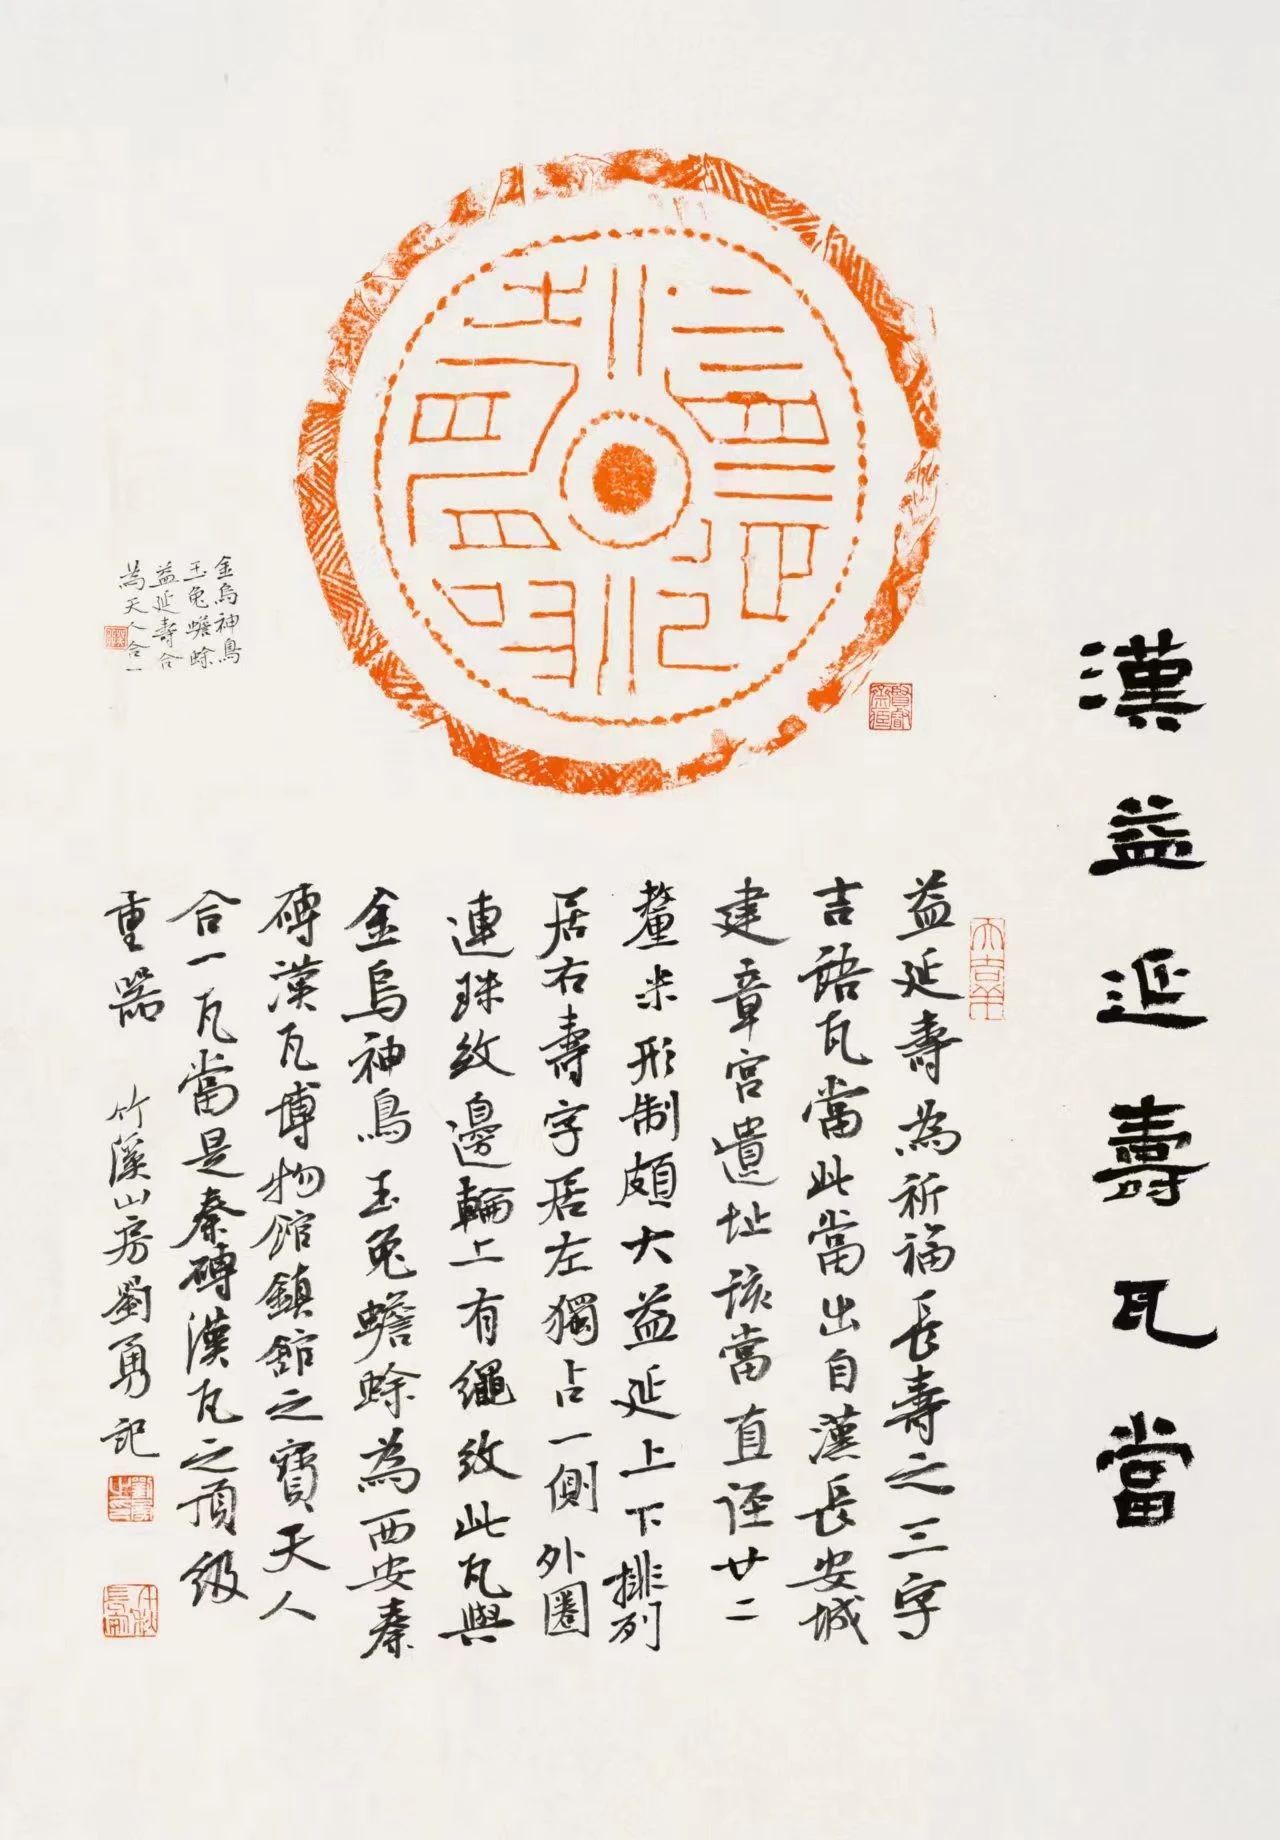 漢益延壽瓦當
益延壽為祈福長壽之三字
吉語瓦當此當出自漢長安城
建章宮遺址該當直徑廿二
釐米形制頗大益延上下排列
居右壽字居左獨占一側外圈
連珠紋邊輪上有繩紋此瓦與
金烏神鳥玉兔蟾蜍為西安秦
磚漢瓦博物館鎮館之寶天人
合一瓦當是秦磚漢瓦之頂級
重器 竹溪山房劉勇記
金烏神鳥
玉兔蟾蜍
益延壽合
為天人合一
益延壽
大吉羊